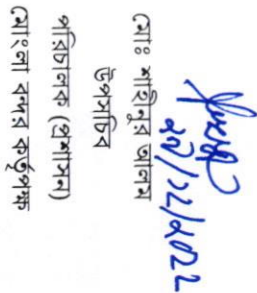 ২৭/১২/২০২২
মোঃ শাহিনুর আলম
উপসচিব
পরিচালক (প্রশাসন)
মোংলা বন্দর কর্তৃপক্ষ